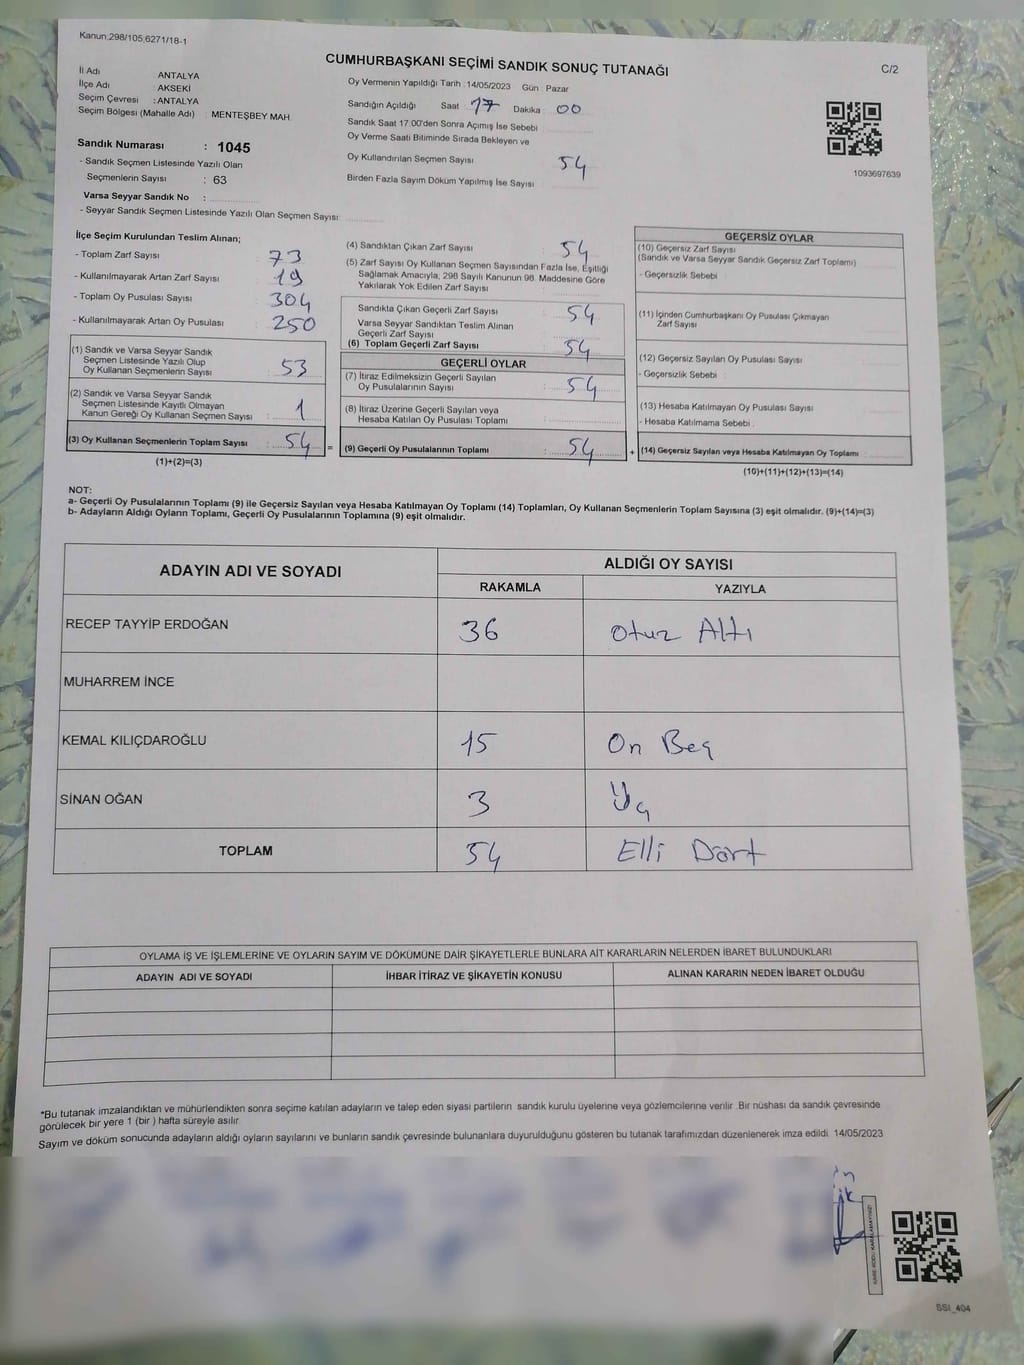 Kanun:298/105;6271/18-1
CUMHURBAŞKANI SEÇİMİ SANDIK SONUÇ TUTANAĞI
C/2
İl Adı ANTALYA
İlçe Adı AKSEKİ
Seçim Çevresi : ANTALYA
Seçim Bölgesi (Mahalle Adı) : MENTEŞBEY MAH.
Sandık Numarası : 1045
- Sandık Seçmen Listesinde Yazılı Olan
Seçmenlerin Sayısı : 63
Varsa Seyyar Sandık No :
- Seyyar Sandık Seçmen Listesinde Yazılı Olan Seçmen Sayısı:
Oy Vermenin Yapıldığı Tarih :14/05/2023 Gün Pazar
Sandığın Açıldığı Saat 17 Dakika 00
Sandık Saat 17:00'den Sonra Açımış İse Sebebi
Oy Verme Saati Bitiminde Sırada Bekleyen ve
Oy Kullandırılan Seçmen Sayısı 54
Birden Fazla Sayım Döküm Yapılmış İse Sayısı
1093697639
İlçe Seçim Kurulundan Teslim Alınan;
- Toplam Zarf Sayısı : 73
- Kullanılmayarak Artan Zarf Sayısı : 19
- Toplam Oy Pusulası Sayısı : 304
- Kullanılmayarak Artan Oy Pusulası : 250
(1) Sandık ve Varsa Seyyar Sandık
Seçmen Listesinde Yazılı Olup
Oy Kullanan Seçmenlerin Sayısı : 53
(2) Sandık ve Varsa Seyyar Sandık
Seçmen Listesinde Kayıtlı Olmayan
Kanun Gereği Oy Kullanan Seçmen Sayısı : 1
(3) Oy Kullanan Seçmenlerin Toplam Sayısı : 54 =
(1)+(2)=(3)
(4) Sandıktan Çıkan Zarf Sayısı 54
(5) Zarf Sayısı Oy Kullanan Seçmen Sayısından Fazla İse, Eşitliği
Sağlamak Amacıyla, 298 Sayılı Kanunun 98. Maddesine Göre
Yakılarak Yok Edilen Zarf Sayısı
Sandıkta Çıkan Geçerli Zarf Sayısı : 54
Varsa Seyyar Sandıktan Teslim Alınan
Geçerli Zarf Sayısı
(6) Toplam Geçerli Zarf Sayısı : 54
GEÇERLİ OYLAR
(7) İtiraz Edilmeksizin Geçerli Sayılan
Oy Pusulalarının Sayısı : 54
(8) İtiraz Üzerine Geçerli Sayılan veya
Hesaba Katılan Oy Pusulası Toplamı :
(9) Geçerli Oy Pusulalarının Toplamı : 54 +
GEÇERSİZ OYLAR
(10) Geçersiz Zarf Sayısı
(Sandık ve Varsa Seyyar Sandık Geçersiz Zarf Toplamı)
- Geçersizlik Sebebi :
(11) İçinden Cumhurbaşkanı Oy Pusulası Çıkmayan
Zarf Sayısı
(12) Geçersiz Sayılan Oy Pusulası Sayısı
- Geçersizlik Sebebi :
(13) Hesaba Katılmayan Oy Pusulası Sayısı
- Hesaba Katılmama Sebebi :
(14) Geçersiz Sayılan veya Hesaba Katılmayan Oy Toplamı :
(10)+(11)+(12)+(13)=(14)
NOT:
a- Geçerli Oy Pusulalarının Toplamı (9) ile Geçersiz Sayılan veya Hesaba Katılmayan Oy Toplamı (14) Toplamları, Oy Kullanan Seçmenlerin Toplam Sayısına (3) eşit olmalıdır. (9)+(14)=(3)
b- Adayların Aldığı Oyların Toplamı, Geçerli Oy Pusulalarının Toplamına (9) eşit olmalıdır.
ADAYIN ADI VE SOYADI ALDIĞI OY SAYISI
RAKAMLA YAZIYLA
RECEP TAYYİP ERDOĞAN 36 Otuz Altı
MUHARREM İNCE
KEMAL KILIÇDAROĞLU 15 On Beş
SİNAN OĞAN 3 Üç
TOPLAM 54 Elli Dört
OYLAMA İŞ VE İŞLEMLERİNE VE OYLARIN SAYIM VE DÖKÜMÜNE DAİR ŞİKAYETLERLE BUNLARA AİT KARARLARIN NELERDEN İBARET BULUNDUKLARI
ADAYIN ADI VE SOYADI İHBAR İTİRAZ VE ŞİKAYETİN KONUSU ALINAN KARARIN NEDEN İBARET OLDUĞU
*Bu tutanak imzalandıktan ve mühürlendikten sonra seçime katılan adayların ve talep eden siyasi partilerin sandık kurulu üyelerine veya gözlemcilerine verilir. Bir nüshası da sandık çevresinde
görülecek bir yere 1 (bir ) hafta süreyle asılır.
Sayım ve döküm sonucunda adayların aldığı oyların sayılarını ve bunların sandık çevresinde bulunanlara duyurulduğunu gösteren bu tutanak tarafımızdan düzenlenerek imza edildi. 14/05/2023
KARE KODU KARALAMAYINIZ!
SSI_404